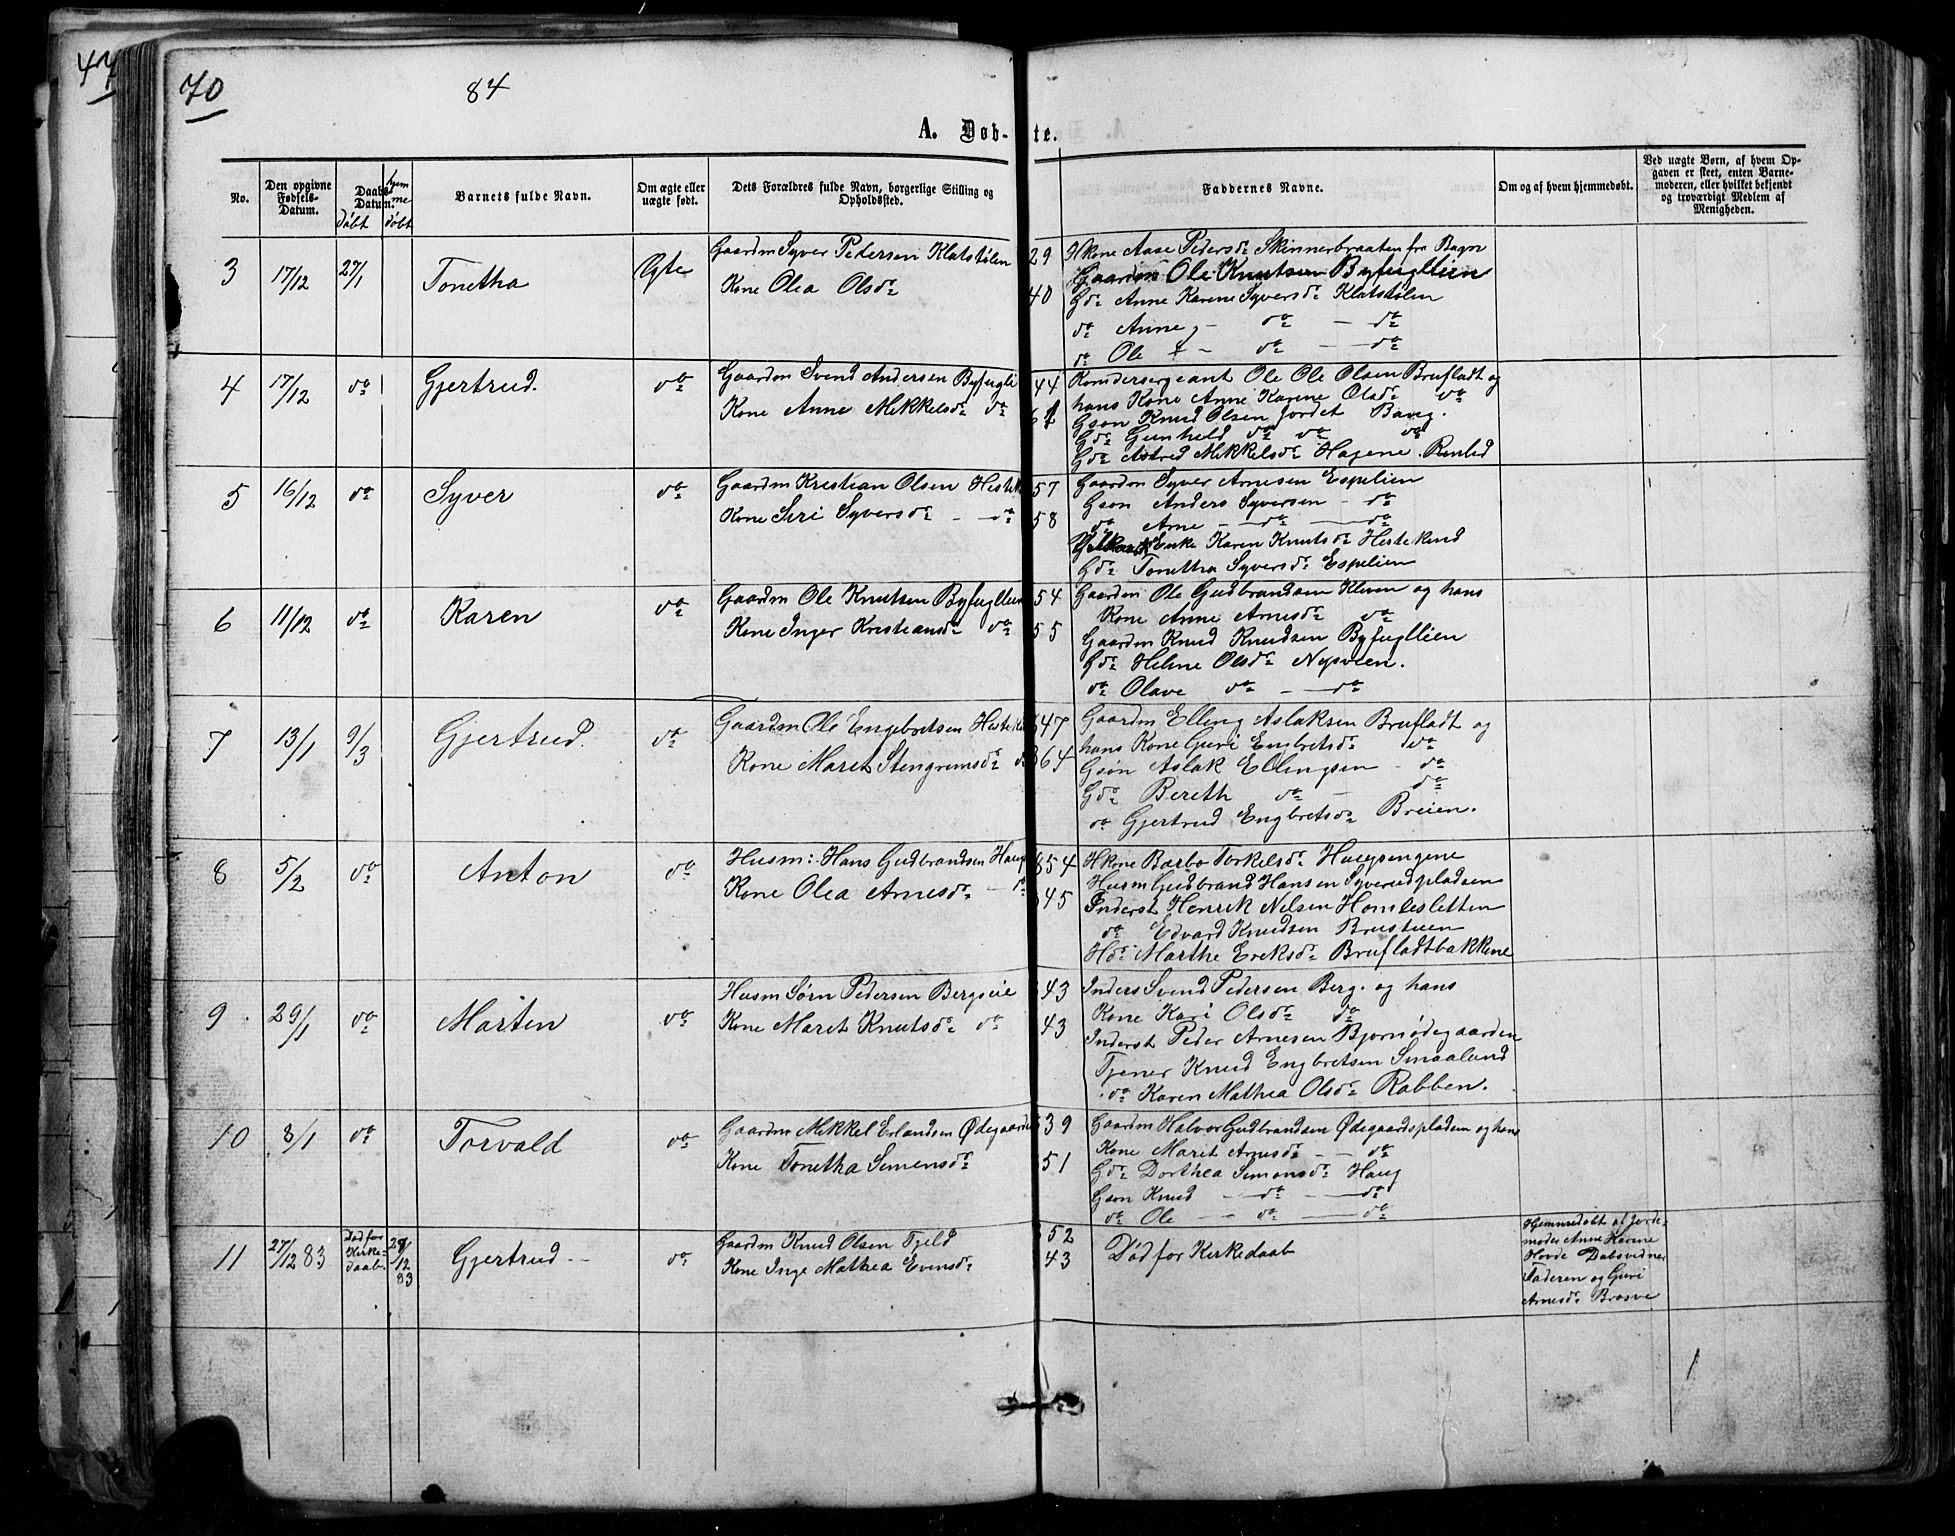 47
70
84
A. Døb-
te.
No.
Den opgivne Fødsels-Datum.
Daabs-Datum.
døbt
hjemmedøbt
Barnets fulde Navn.
Om ægte eller uægte født.
Dets Forældres fulde Navn, borgerlige Stilling og Opholdssted.
Faddernes Navne.
Om og af hvem hjemmedøbt.
Ved uægte Børn, af hvem Opgaven er skeet, enten Barnemoderen, eller hvilket bekjendt og troværdigt Medlem af Menigheden.
3 17/12 27/1 Tonetha Ægte
Gaardm Syver Pedersen Klatstølen 29
Kone Olea Olsdr 40
Hkone Aase Pedersdr Skinnerbraaten fra Bagn
Gaardm Ole Knutsen Byfuglien
Gdr Anne Karene Syversdr Klatstølen
do Anne do - do
do Ole do - do
4 17/12 do Gjertrud. do
Gaardm Svend Andersen Byfugli 44
Kone Anne Mikkelsdr do
Komdersergeant Ole Ole Olsen Brufladt og
hans Kone Anne Karene Olsdr do
Gsøn Knud Olsen Jordet Bang.
Gdr Gunhild do do do
Gdr Astrid Mikkelsdr Hagene
5 16/12 do Syver do
Gaardm Kristian Olsen Hestek 57
Kone Siri Syversdr - do 58
Gaardm Syver Arnesen Espelien
Gsøn Anders Syversen - do
do Arne - do - do
Enke Karen Knutsdr Hestekind
Gdr Tonetha Syversdr Espelien
6 11/12 do Karen do
Gaardm Ole Knutsen Byfuglien 54
Kone Inger Kristiansdr do 55
Gaardm Ole Gudbrandsen Kleven og hans
Kone Anne Arnesdr do
Gaardm Knud Knudsen Byfuglien
Gdr Helene Olsdr Nysveen.
do Olave do - do
7 13/1 9/3 Gjertrud. do
Gaardm Ole Engebretsen Hesteki 847
Kone Marit Stengrimsdr do 864
Gaardm Elling Aslaksen Brufladt og
hans Kone Guri Engbretsdr do
Gsøn Aslak Ellingsen - do
Gdr Bereth do - do
do Gjertrud Engbretsdr Breien.
8 5/2 do Anton do
Husm: Hans Gudbrandsen Haug 854
Kone Olea Arnesdr - do 845
Hkone Barbo Torkelsdr Haugsengene
Husm Gudbrand Hansen Syverudpladsen
Inderst Henrik Nelsen Homlesletten
do Edvard Knudsen Brustuen
Hdr Marthe Eriksdr Brufladtbakkene
9 29/1 do Marten do
Husm Sørn Pedersen Bergseie 43
Kone Marit Knutsdr do 43
Inders Svend Pedersen Berg. og hans
Kone Kari Olsdr do
Inderst Peder Arnesen Bjørnødegaarden
Tjener Knud Engbretsen Smaalund
do Karen Mathea Olsdr Rabben.
10 8/1 do Torvald do
Gaardm Mikkel Erlandsen Ødegaarde 39
Kone Tonetha Simensdr 51
Gaardm Halvor Gudbrandsen Ødegaardspladsen og hans
Kone Marit Arnesdr - - do
Gdr Dorthea Simonsdr Haug
Gsøn Knud - do - do
do Ole - - do - do
11 27/12 83 Død for Kirkedaab 29/12 83 Gjertrud - do
Gaardm Knud Olsen Tjeld 52
Kone Inge Mathea Evensdr 43
Død for Kirkedaab
Hjemmedøbt af Jorde-
moder Anne Karine
Hovde Dabsvidner
Faderen og Guri
Arnesdr
1